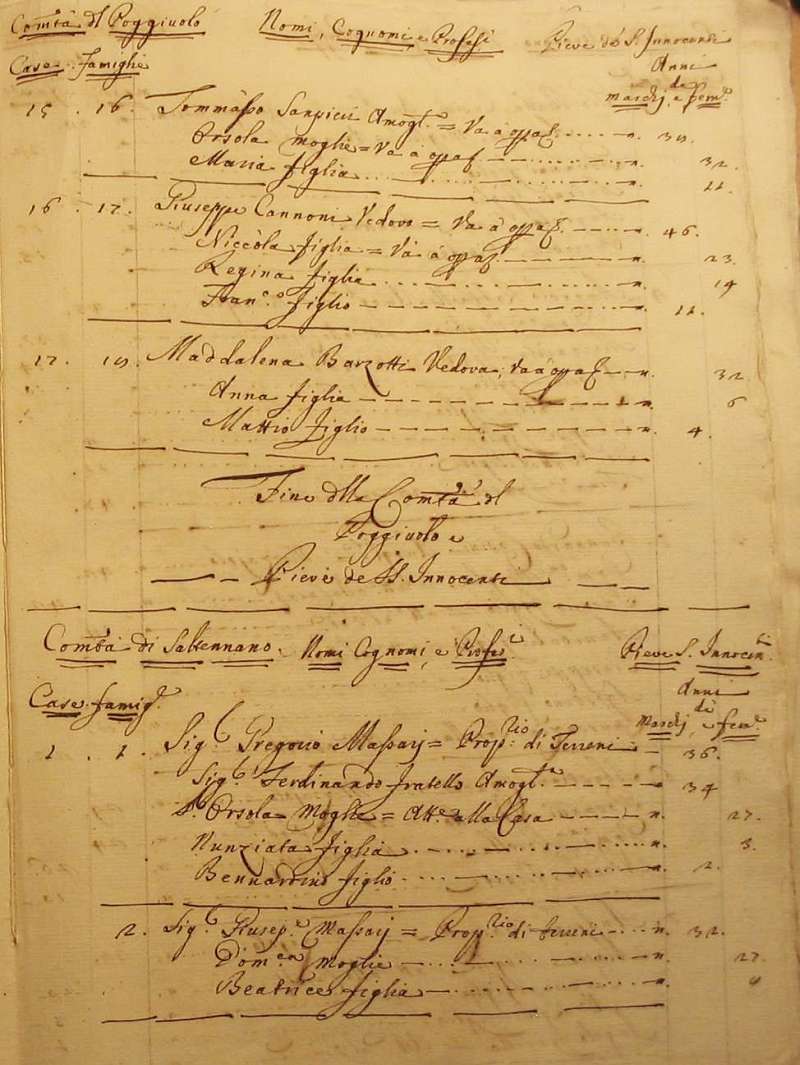 Com.tà dl Poggiuolo Nomi, Cognomi e Profesi Pieve de S. Innocenti
Case famiglie Anni
de
maschj, e fem.e
15 . 16. Tommasso Amogl.to = Va à opra
Orsola moglie = Va à opra 32.
Maria figlia 11.
16 . 17. Giuseppe Cannoni Vedovo = Va à opra 46.
Niccola figlia = Và à opra 23.
Regina figlia 19
Fran.co figlio 11.
17 . Maddalena Barzotti Vedova, va à opra 32
Anna figlia 6
Mattio figlio 4.
Fine dlla Com.tà dl
Poggiuolo e
Pieve de SS. Innocenti
Com.tà di Saltennano. Nomi Cognomi, e Profes.i Pieve S. Innocen.ti
Case famigl.e Anni
di
Maschj, e fem.e
1 . 1. Sig.e Gregorio Massarj = Prop.rio di Terreni 36.
Sig.e Ferdinando fratello Amogl.to 34
S.a Orsola Moglie = Att.e alla Casa 27.
Nunziata figlia 3.
Bennardino figlio 2.
2. Sig.e Giusep.e Massarj = Prop.rio di terreni 32.
Dom.ca moglie 27
Beatrice figlia